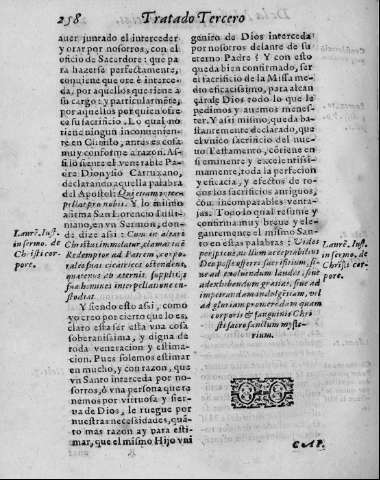 258 Tratado Tercero
auer juntado el interceder
y orar por nosotros, con el
oficio de Sacerdote: que pa
ra hazerse perfectamente,
conuiene que ore è interce-
da, por aquellos que tiene a
su cargo: y particularmẽte,
por aquellos por quien ofre
ce su sacrificio. Lo qual no
tiene ningun inconuenien-
te en Christo, antes es cosa
muy conforme a razon. As-
si lo siente el venerable Pa-
dre Dionysio Cartuxano,
declarando aquella palabra
del Apostol: Qui etiam inter-
pellat pro nobis. Y lo mismo
afirma San Lorencio Iusti-
niano, en vn Sermon, don-
de dize assi:
Christus immolatur, clamat idẽ
Redemptor ad Patrem, corpo-
ris sui cicatrices ostendens,
quatenus ab aeternis supplicijs
sua homines interpellatione cu-
stodiat.
Y siendo esto assi, como
yo creo por cierto que lo es,
claro està ser esta vna cosa
soberanissima, y digna de
toda veneracion y estima-
cion. Pues solemos estimar
en mucho, y con razon, que
vn Santo interceda por no-
sotros, ò vna persona que te
nemos por virtuosa y sier-
ua de Dios, le ruegue por
nuestras necessidades, quã-
to mas razon ay para esti-
mar, que el mismo Hijo vni
Laurẽ. Iust.
in sermo. de
Christi cor-
pore.
genito de Dios interceda
por nosotros delante de su
eterno Padre? Y con esto
queda bien confirmado, ser
el sacrificio de la Missa me-
dio eficacissimo, para alcan
çar de Dios todo lo que le
pedimos y auemos menes-
ter. Y assi mismo, queda ba
stantemente declarado, que
el vnico sacrificio del nue-
uo Testamento, cõtiene en
si eminente y excelentissi-
mamente, toda la perfecion
y eficacia, y efectos de to-
dos los sacrificios antiguos,
con incomparables venta-
jas. Todo lo qual resume y
confirma muy breue y ele-
gantemente el mismo San-
to en estas palabras: Vides
perspicuè, nullum acceptabilius
Deo posse offerri sacrificium, si-
ue ad exoluendum laudes, siue
ad exhibendum gratias, siue ad
imperandam indulgẽtiam, vel
ad gloriam promerẽdam quam
corporis & sanguinis Chri
sti sacrosanctum myste-
rium.
Laurẽ. Iust.
in sermo. de
Christi cor-
pore.
CAP.